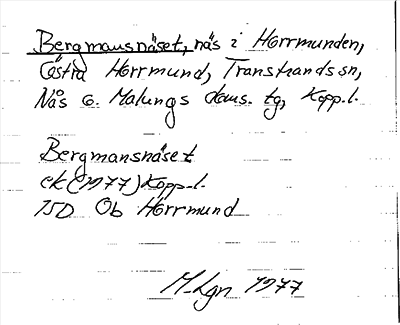 Bergmansnäset, näs i Horrmunden,
Östra Horrmund, Transtrands sn,
Nås o. Malungs doms. tg, Kopp. l.
Bergmansnäset
ek (1977) Kopp. l.
15D Ob Horrmund
M. Lgn 1977